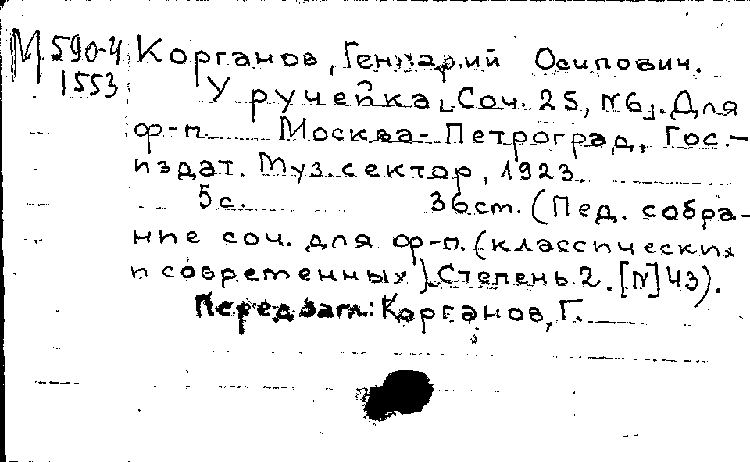 М 590-4 Корганов, Геннарий Осипович.
1553 У ручейка. Соч. 25, №6. Для
ф-п. Москва-Петроград, Гос.
издат. Муз. сектор, 1923.
5 с. 36 см. (Пед. собра-
ние соч. для ф-п. (классических
и современных). Степень 2. [№] 43).
Перед загл.: Корганов, Г.